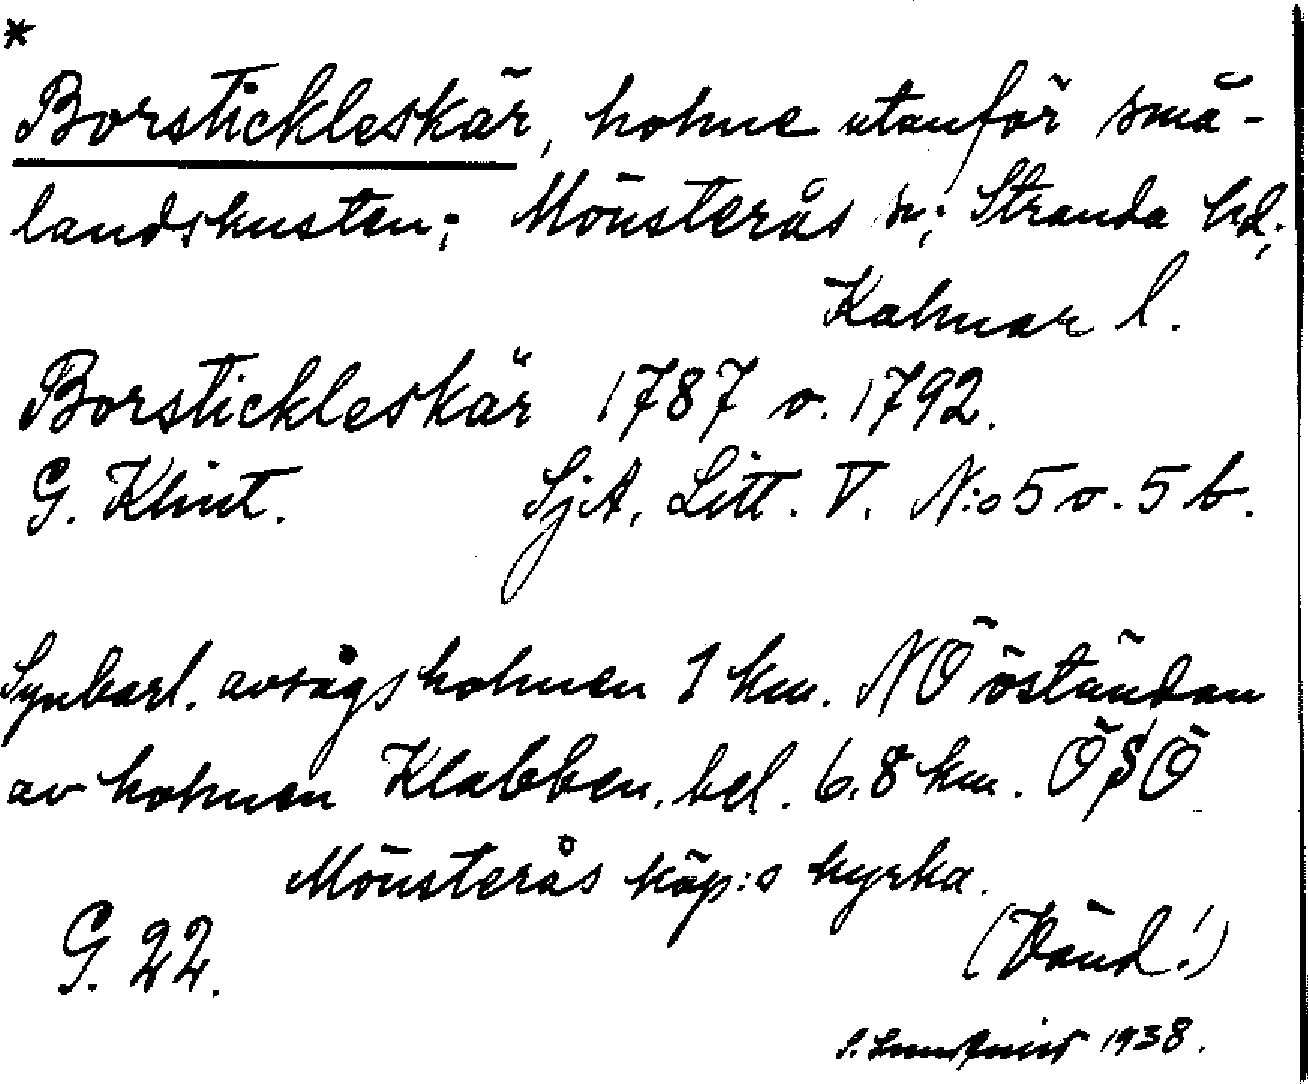 *
Borstickleskär, holme utanför små-
landskusten; Mönsterås sn; Stranda hd;
Kalmar l.
Borstickleskär 1787 o. 1792.
G. Klint. SjA, Litt. V. N:o 5 o. 5 b.
Synbarl. avsågs holmen 1 km. NÖ östÿndan
av holmen Klabben, bel. 6,8 km. ÖSÖ
Mönsterås köp:s kyrka.
G. 22. (Vänd!)
1938.